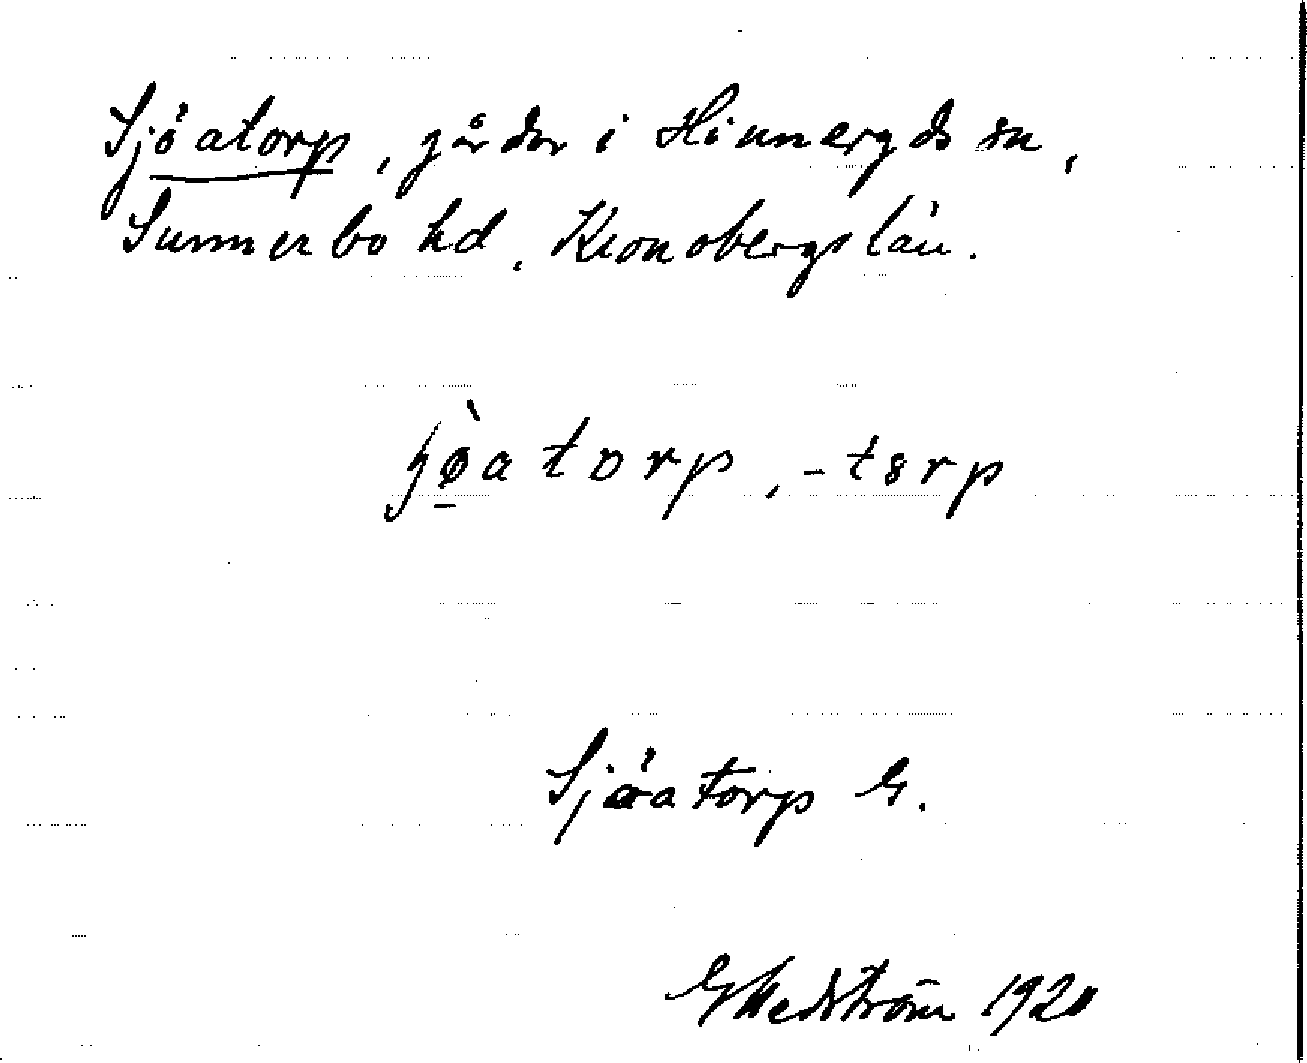 Sjöatorp, gårdar i Hinneryds sn,
Sunnerbo hd, Kronobergs län.
-torp
Sjöatorp G.
G Hedström 1920